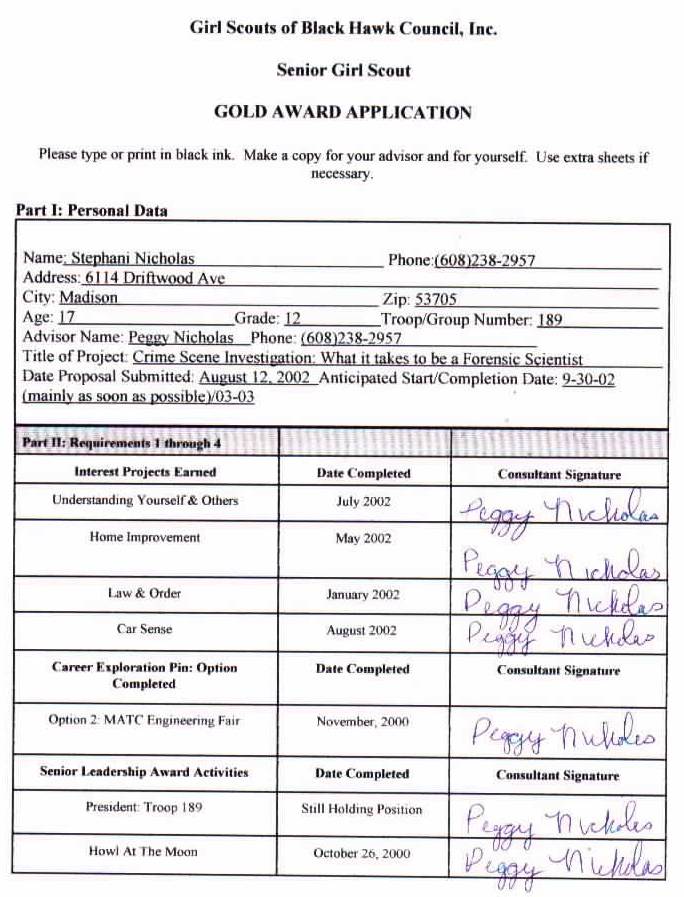 Girl Scouts of Black Hawk Council, Inc.
Senior Girl Scout
GOLD AWARD APPLICATION
Please type or print in black ink. Make a copy for your advisor and for yourself. Use extra sheets if
necessary.
Part I: Personal Data
Name: Stephani Nicholas Phone:(608)238-2957
Address: 6114 Driftwood Ave
City: Madison Zip: 53705
Age: 17 Grade: 12 Troop/Group Number: 189
Advisor Name: Peggy Nicholas Phone: (608)238-2957
Title of Project: Crime Scene Investigation: What it takes to be a Forensic Scientist
Date Proposal Submitted: August 12, 2002 Anticipated Start/Completion Date: 9-30-02
(mainly as soon as possible)/03-03
Part II: Requirements 1 through 4
Interest Projects Earned Date Completed Consultant Signature
Understanding Yourself & Others July 2002 Peggy Nicholas
Home Improvement May 2002 Peggy Nicholas
Law & Order January 2002 Peggy Nicholas
Car Sense August 2002 Peggy Nicholas
Career Exploration Pin: Option Date Completed Consultant Signature
Completed
Option 2: MATC Engineering Fair November, 2000 Peggy Nicholas
Senior Leadership Award Activities Date Completed Consultant Signature
President: Troop 189 Still Holding Position Peggy Nicholas
Howl At The Moon October 26, 2000 Peggy Nicholas